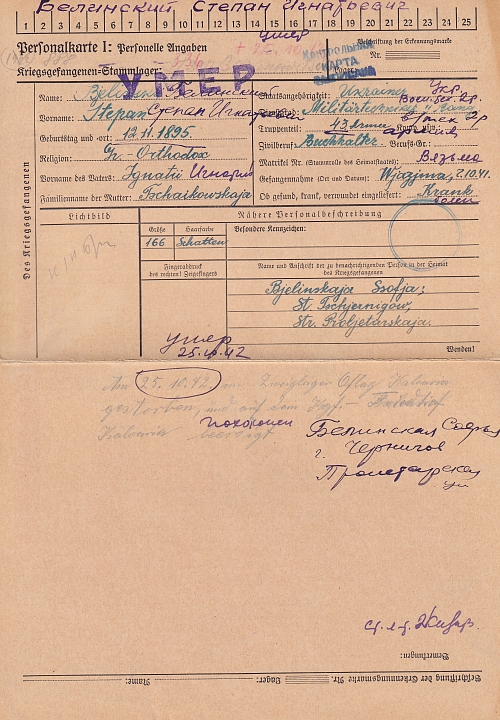 Белинский Степан Игнатьевич
1 2 3 4 5 6 7 8 9 10 11 12 13 14 15 16 17 18 19 20 21 22 23 24 25
умер
Personalkarte I: Personelle Angaben
Beschriftung der Erkennungsmarke
Nr.
КОНТРОЛЬНАЯ
КАРТА
Kriegsgefangenen-Stammlager:
Lager:
УМЕР
Des Kriegsgefangenen
Name: Bjelinski Белинский
Staatsangehörigkeit: Ukrainer Укр.
Vorname: Stepan Степан Игнатьевич
Dienstgrad: Militärtechniker
Geburtstag und -ort: 12.11.1895.
Truppenteil: 43. Armee Komp. usw.:
Religion: Gr. Orthodox
Zivilberuf: Buchhalter Berufs-Gr.:
Matrikel Nr. (Stammrolle des Heimatstaates): Вязьма
Vorname des Vaters: Ignatii Игнатий
Gefangennahme (Ort und Datum): Wjazjma, 7.10.41.
Familienname der Mutter: Tschaikowskaja
Ob gesund, krank, verwundet eingeliefert: Krank.
болен
Lichtbild
Nähere Personalbeschreibung
Größe Haarfarbe Besondere Kennzeichen:
166 Schatten
Fingerabdruck
des rechten! Zeigefingers
Name und Anschrift der zu benachrichtigenden Person in der Heimat
des Kriegsgefangenen
Bjelinskaja Ssofja;
St. Tschjernigow,
Str. Proljetarskaja.
умер
25.10.42
Wenden!
Am 25.10.42 im Zweiglager Oflag Kalwaria
gestorben, und auf dem Kgf. – Friedhof
Kalwaria beerdigt
похоронен
Белинская Софья
г. Чернигов
Пролетарская
ул
Bemerkungen:
Beschriftung der Erkennungsmarke Nr. Lager: Name: